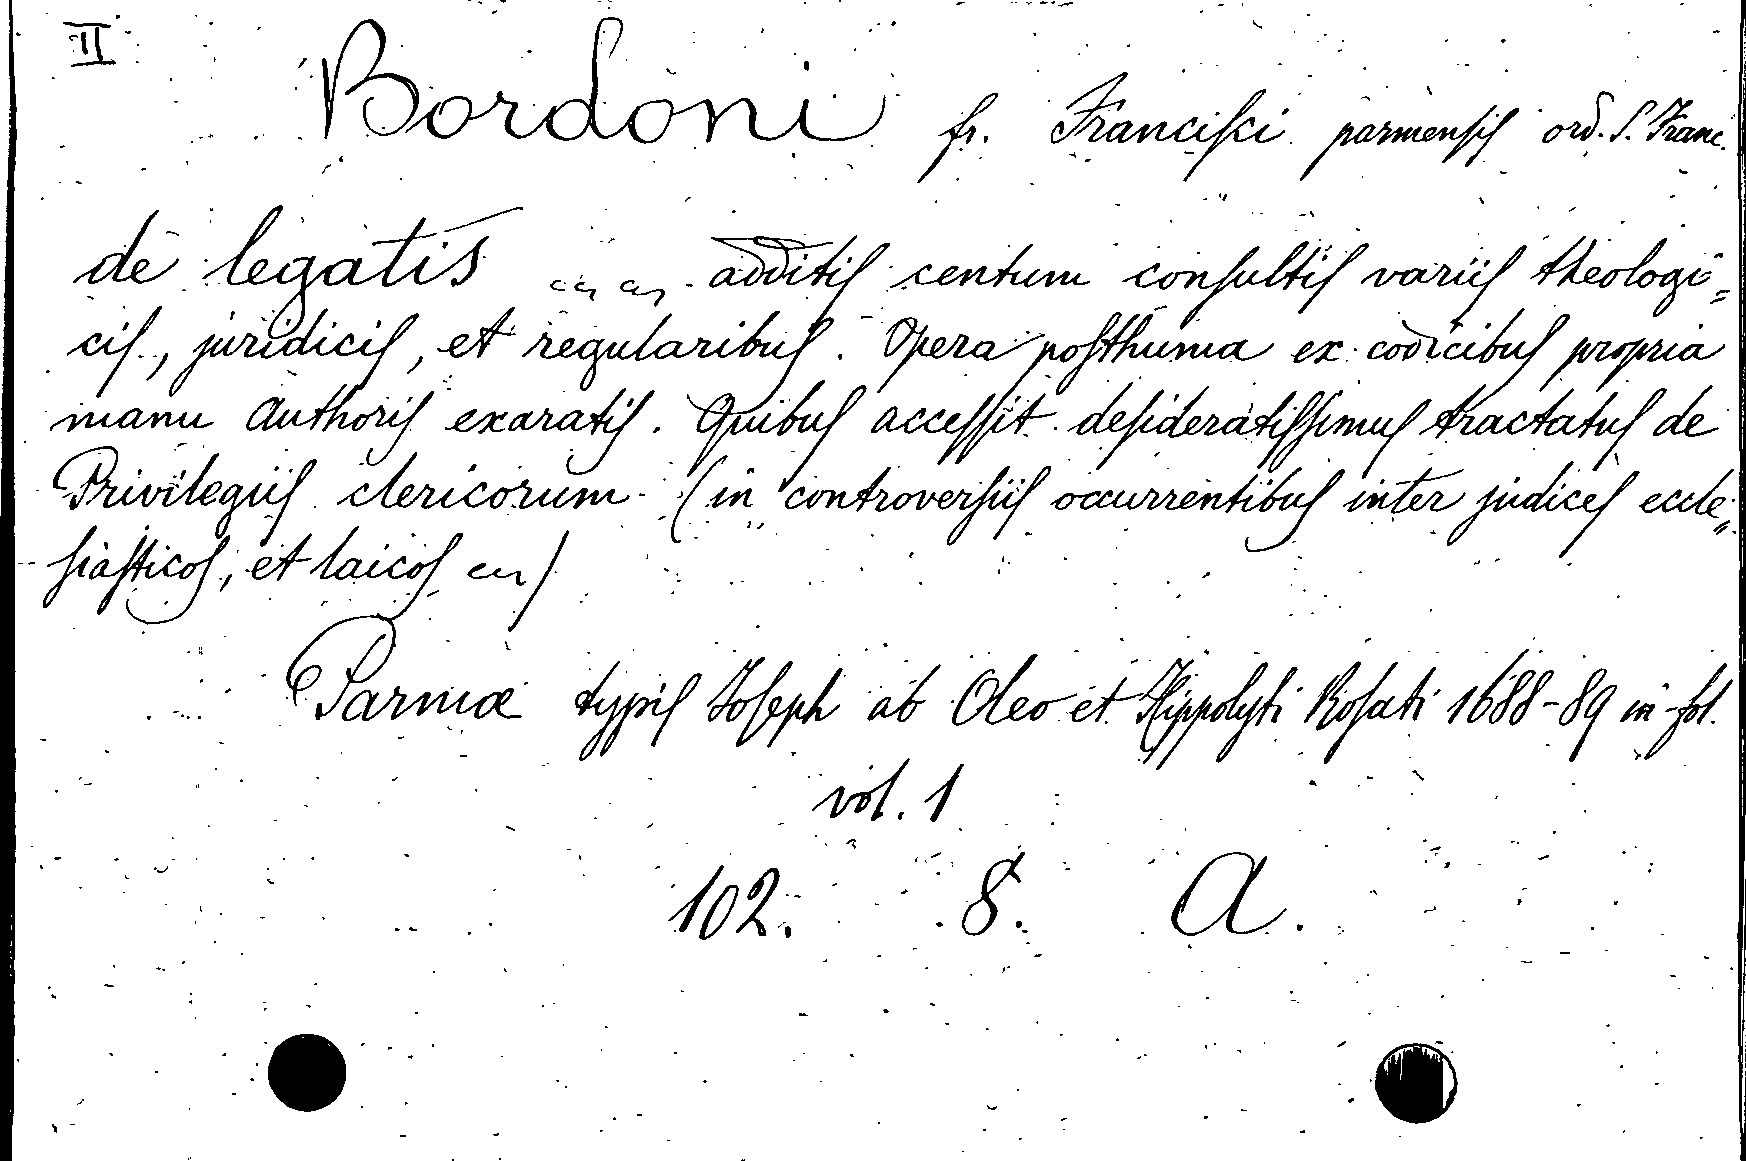 II
Bordoni fr. Franciſci parmenſiſ ord. S. Franc.
de legatis additiſ centum conſultiſ variiſ theologi=
ciſ, juridiciſ, et regularibuſ. Opera poſthuma ex codicibuſ propria
manu Authoriſ exaratiſ. Quibuſ acceſſit deſideratiſſimuſ tractatuſ de
Privilegiiſ clericorum (in controverſiiſ occurrentibuſ inter judiceſ eccle=
ſiaſticoſ, et laicoſ )
Parmæ typiſ Joſeph ab Oleo et Hippolyti Roſati 1688-89 in fol.
vol. 1
102. 8. A.